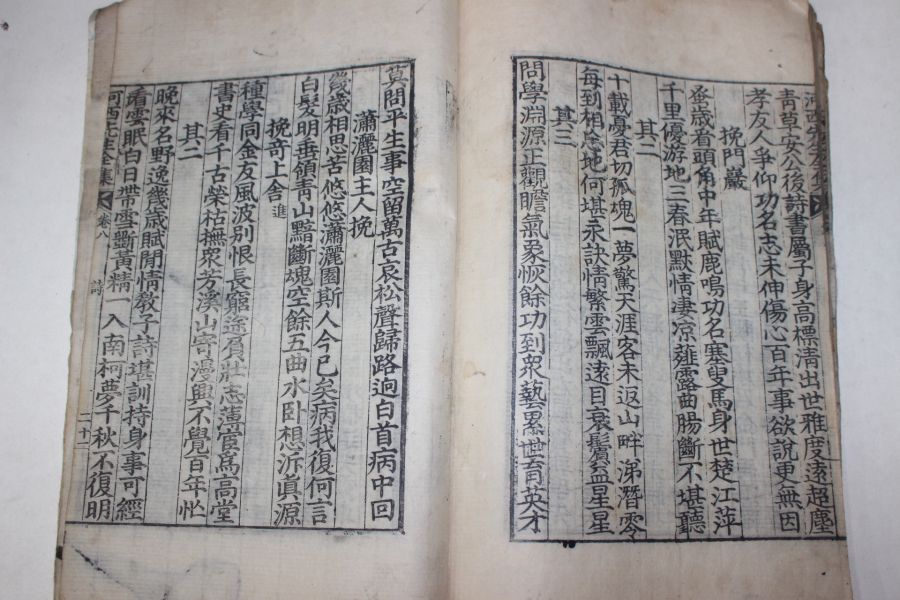 靑草安公後詩書屬子身高標淸出世雅度遠超塵
孝友人爭仰功名志未伸傷心百年事欲說更無因
挽門巖
丱歲看頭角中年賦鹿鳴功名塞叟馬身世楚江萍
千里優游地三春泯默情凄凉薤露曲腸斷不堪聽
其二
十載憂君切孤魂一夢驚天涯客未返山畔涕潛零
每到相念地何堪永訣情繁雲飄遠目衰鬢盆星星
其三
問學淵源正觀瞻氣象恢餘功到衆藝累世育英才
莫問平生事空留萬古哀松聲歸路逈白首病中回
瀟灑園主人挽
幾歲相思苦悠悠瀟灑園斯人今已矣病我復何言
白髮明垂領靑山黯斷魂空餘五曲水臥想泝眞源
挽奇上舍進
種學同金友風波別恨長窮途負壯志薄宦爲高堂
書史看千古榮枯撫衆芳溪山寄漫興不覺百年忙
其二
晚來名野逸幾歲賦閒情敎子詩堪訓持身事可經
看雲眠白日帶雪斸黃精一入南柯夢千秋不復明
河西先生全集 卷八 詩 二十二